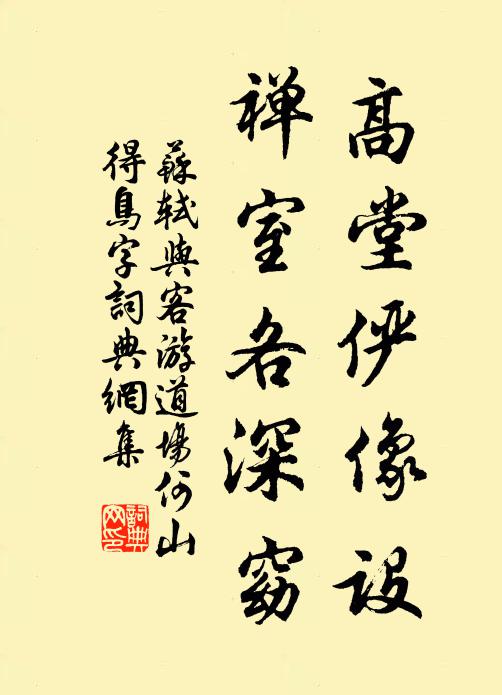 高堂俨像设
禅室各深窈
蘇軾與客游道場何山
得鳥字詞典網集
詞典
网印